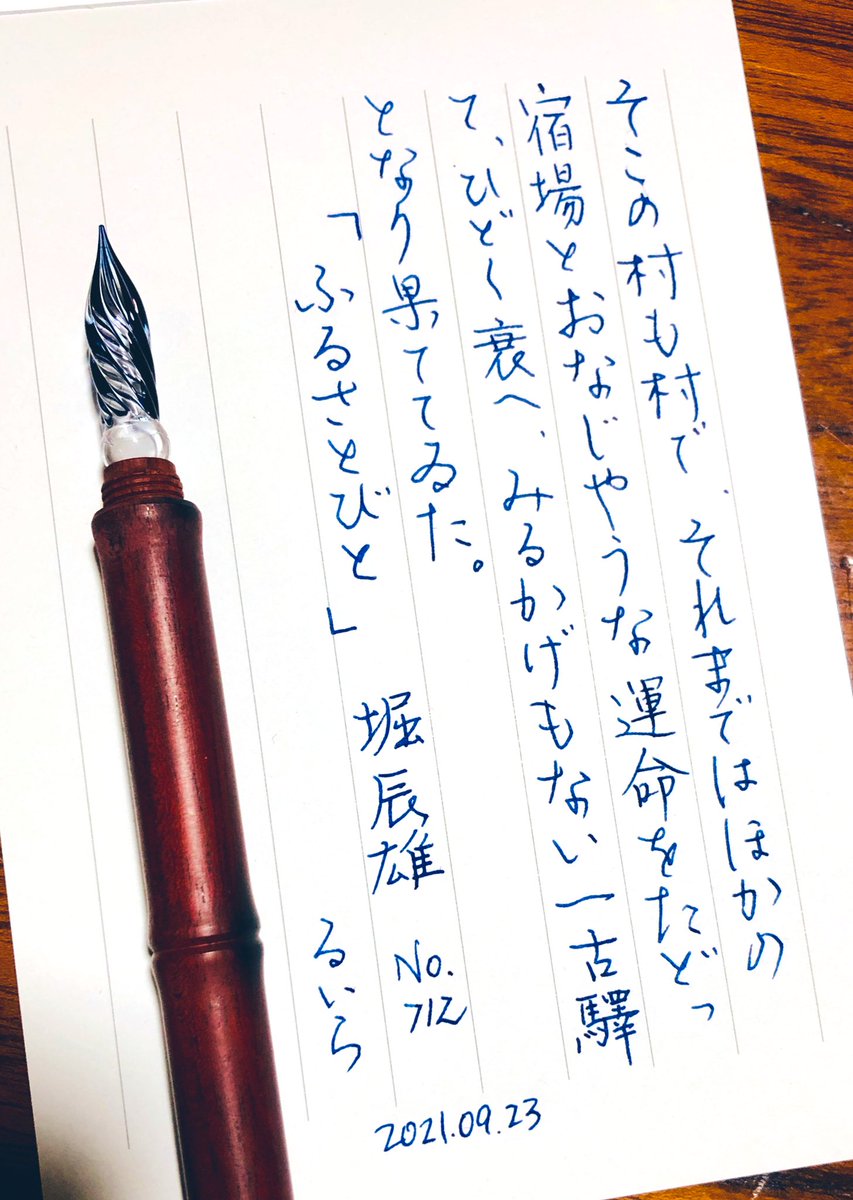 そこの村も村で、それまではほかの
宿場とおなじやうな運命をたどっ
て、ひどく衰へ、みるかげもない一古驛
となり果ててゐた。
「ふるさとびと」 堀辰雄 No.712
るいら
2021.09.23